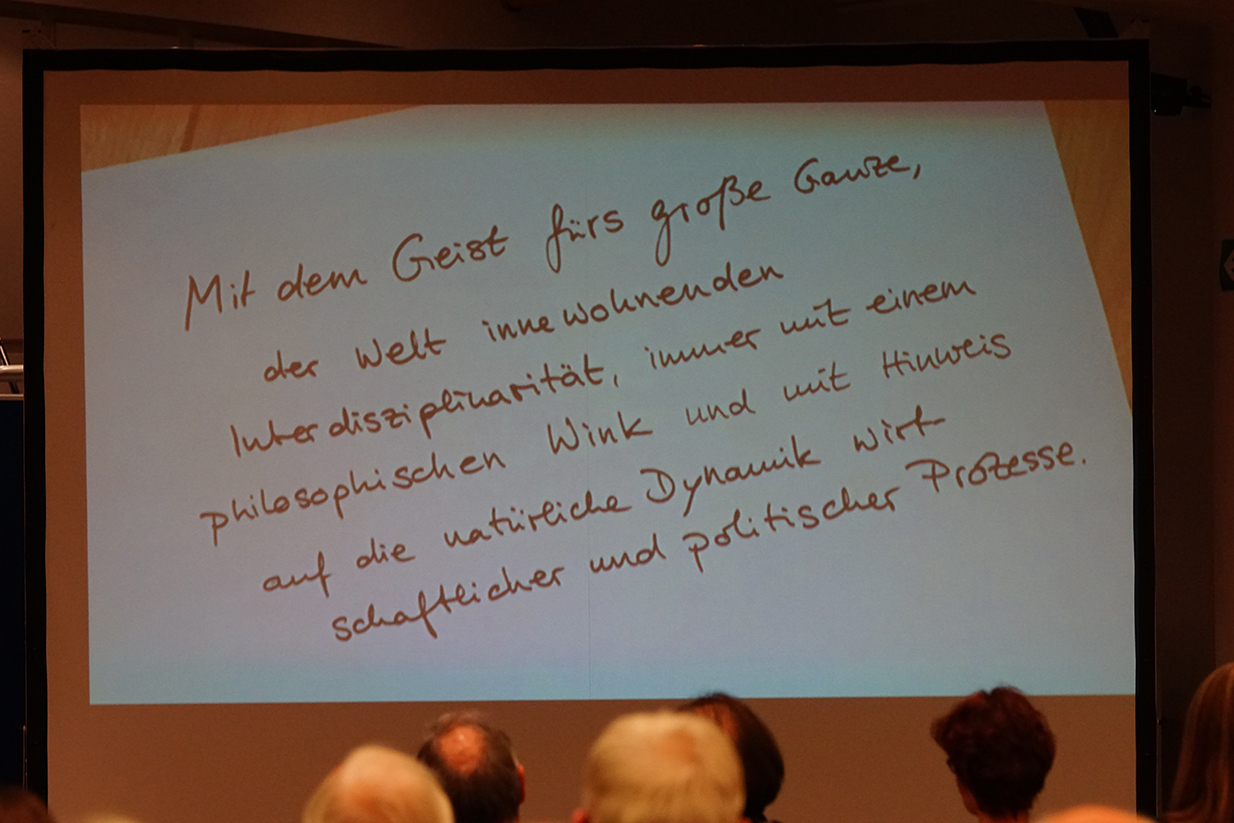 Mit dem Geist fürs große Ganze,
der Welt innewohnenden
Interdisziplinarität, immer mit einem
philosophischen Wink und mit Hinweis
auf die natürliche Dynamik wirt-
schaftlicher und politischer Prozesse.